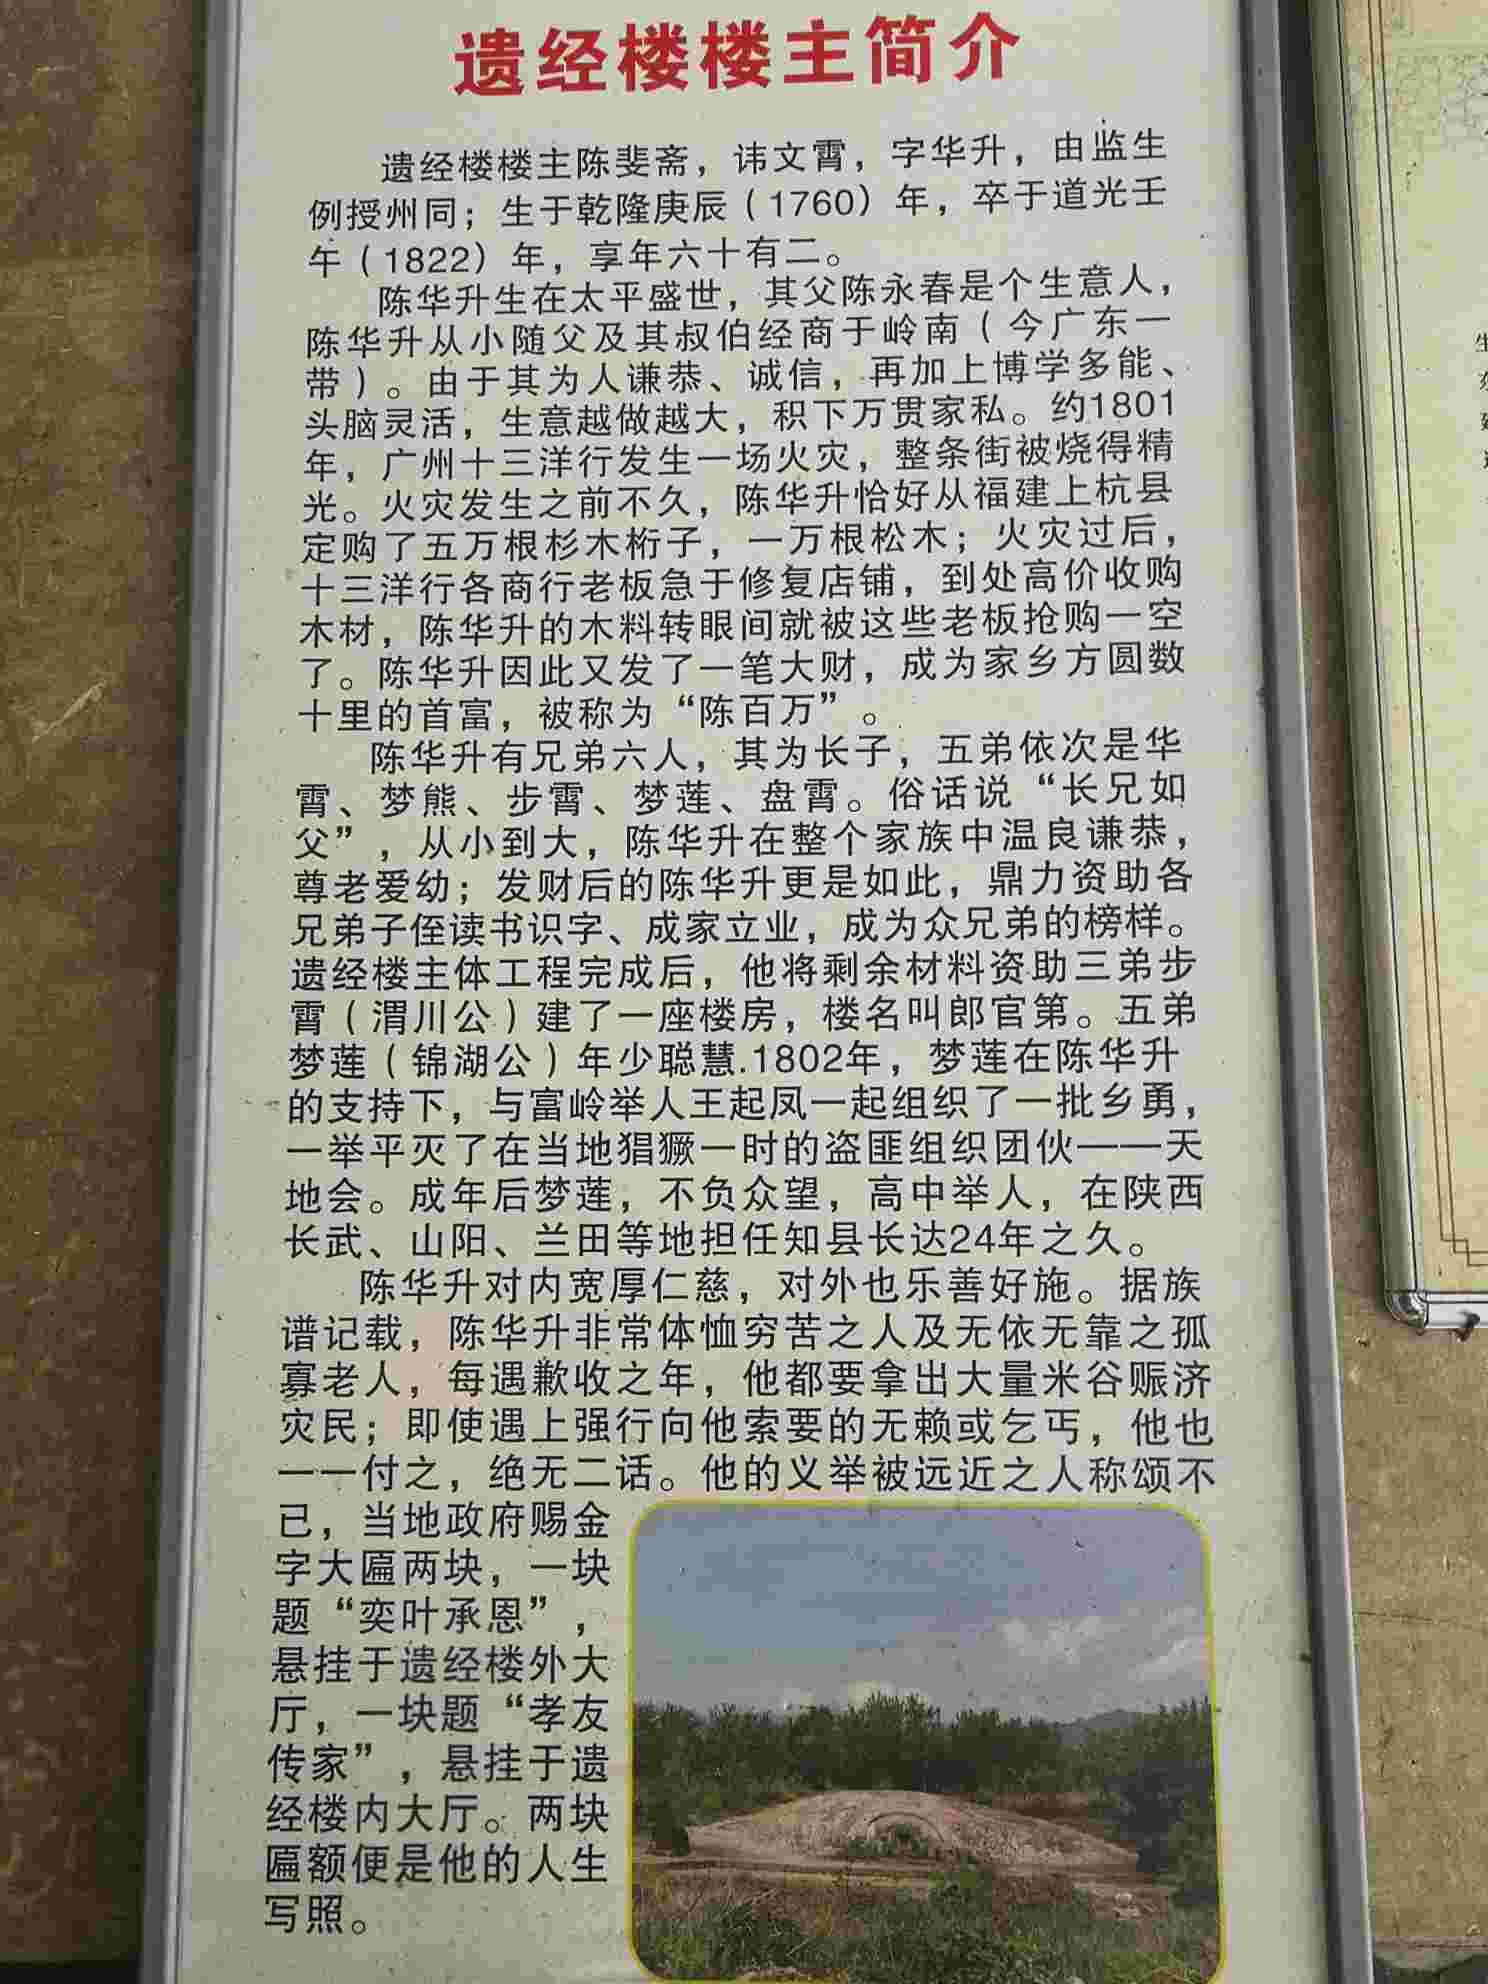 遗经楼楼主简介
遗经楼楼主陈斐斋，讳文霄，字华升，由监生
例授州同；生于乾隆庚辰（1760）年，卒于道光壬
午（1822）年，享年六十有二。
陈华升生在太平盛世，其父陈永春是个生意人，
陈华升从小随父及其叔伯经商于岭南（今广东一
带）。由于其为人谦恭、诚信，再加上博学多能、
头脑灵活，生意越做越大，积下万贯家私。约1801
年，广州十三洋行发生一场火灾，整条街被烧得精
光。火灾发生之前不久，陈华升恰好从福建上杭县
定购了五万根杉木桁子，一万根松木；火灾过后，
十三洋行各商行老板急于修复店铺，到处高价收购
木材，陈华升的木料转眼间就被这些老板抢购一空
了。陈华升因此又发了一笔大财，成为家乡方圆数
十里的首富，被称为“陈百万”。
陈华升有兄弟六人，其为长子，五弟依次是华
霄、梦熊、步霄、梦莲、盘霄。俗话说“长兄如
父”，从小到大，陈华升在整个家族中温良谦恭，
尊老爱幼；发财后的陈华升更是如此，鼎力资助各
兄弟子侄读书识字、成家立业，成为众兄弟的榜样。
遗经楼主体工程完成后，他将剩余材料资助三弟步
霄（渭川公）建了一座楼房，楼名叫郎官第。五弟
梦莲（锦湖公）年少聪慧.1802年，梦莲在陈华升
的支持下，与富岭举人王起凤一起组织了一批乡勇，
一举平灭了在当地猖獗一时的盗匪组织团伙——天
地会。成年后梦莲，不负众望，高中举人，在陕西
长武、山阳、兰田等地担任知县长达24年之久。
陈华升对内宽厚仁慈，对外也乐善好施。据族
谱记载，陈华升非常体恤穷苦之人及无依无靠之孤
寡老人，每遇歉收之年，他都要拿出大量米谷赈济
灾民；即使遇上强行向他索要的无赖或乞丐，他也
一一付之，绝无二话。他的义举被远近之人称颂不
已，当地政府赐金
字大匾两块，一块
题“奕叶承恩”，
悬挂于遗经楼外大
厅，一块题“孝友
传家”，悬挂于遗
经楼内大厅。两块
匾额便是他的人生
写照。